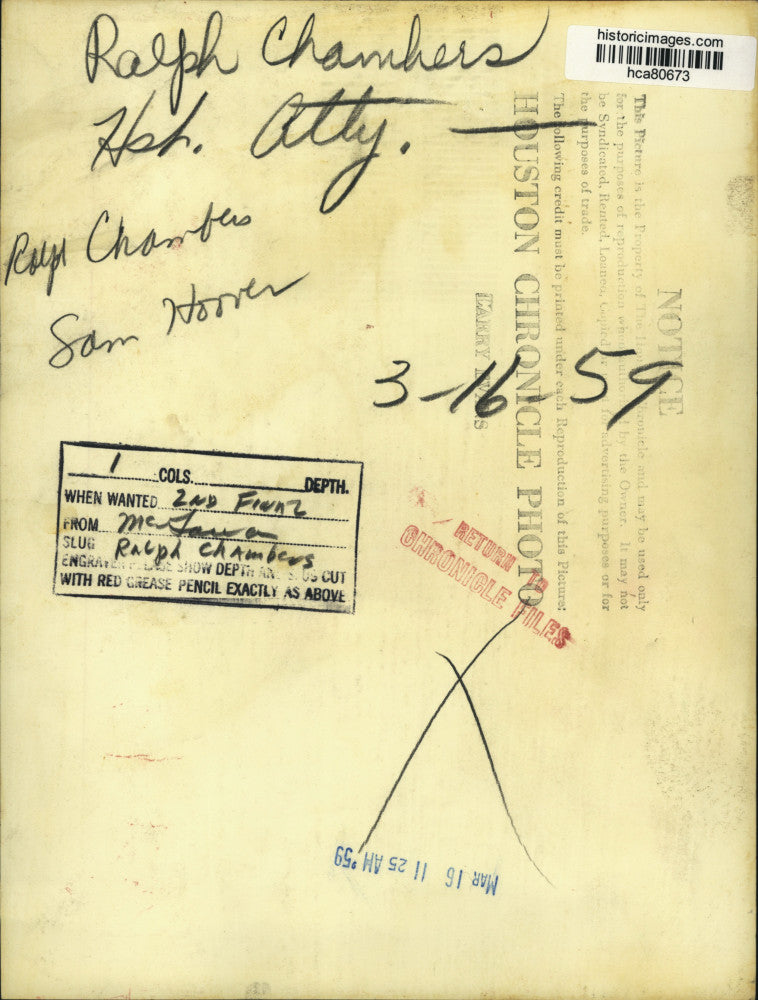 historicimages.com
hca80673
Ralph Chambers
Hsh. Atty.
Ralph Chambers
Sam Hoover
3-16-59
NOTICE
This Picture is the Property of The Houston Chronicle and may be used only
for the purposes of reproduction when by the Owner. It may not
be Syndicated, Rented, Loaned, Copied advertising purposes or for
the purposes of trade.
The following credit must be printed under each Reproduction of this Picture:
HOUSTON CHRONICLE PHOTO
LARRY
1 COLS. DEPTH.
WHEN WANTED 2ND FINAL
FROM
SLUG Ralph Chambers
ENGRAVER PLEASE SHOW DEPTH CUT
WITH RED GREASE PENCIL EXACTLY AS ABOVE
RETURN TO
CHRONICLE FILES
MAR 16 11 25 AM '59